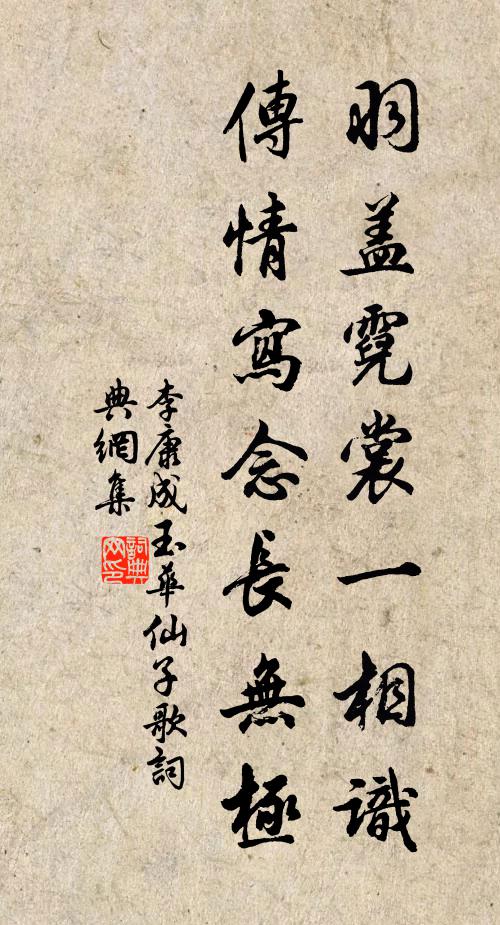 羽盖霓裳一相識
傳情寫念長無極
李康成玉華仙子歌詞
典網集
詞典網印